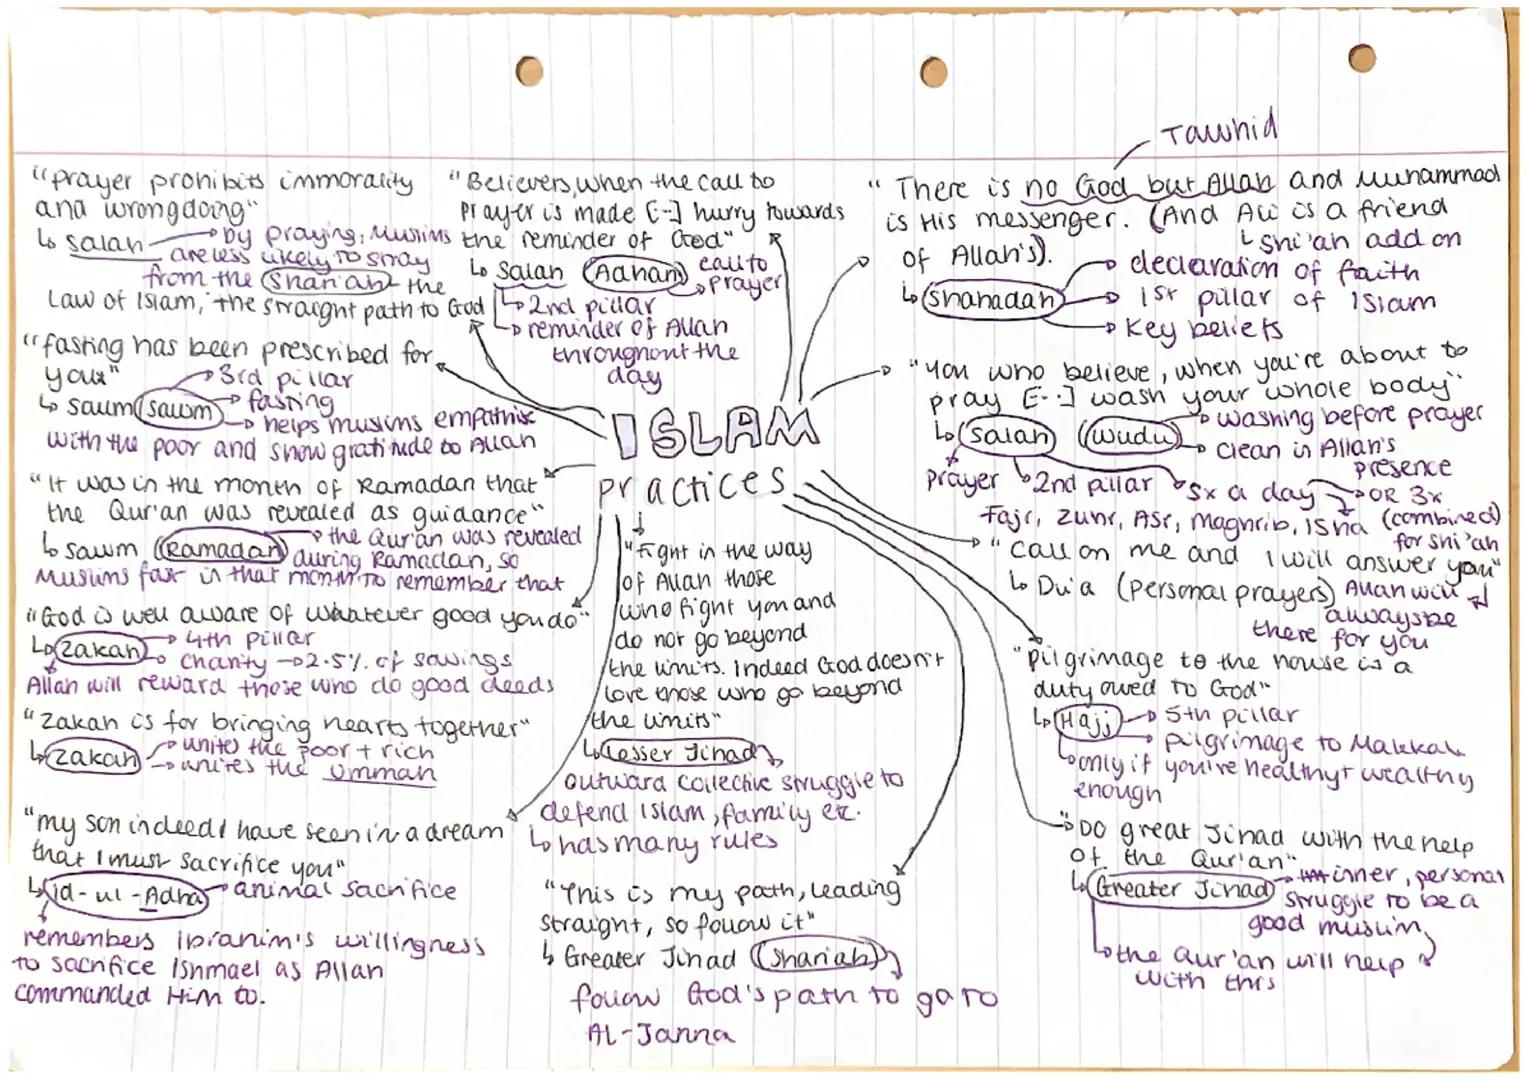 Tawhid
"prayer prohibits immorality
and wrongdoing"
↳ salah → by praying, Muslims
are less likely to stray
from the (Shari'ah) the
Law of Islam, the straight path to God
"Believers, when the call to
prayer is made [--] hurry towards
the reminder of God"
↳ salah (Adhan) call to
→ prayer
↳ 2nd pillar
→ reminder of Allah
throughout the
day
"There is no God but Allah and Muhammad
is His messenger. (And Ali is a friend
of Allah's).
↳ Shi'ah add on
↳ (Shahadah) → declaration of faith
→ 1st pillar of Islam
→ key beliefs
"fasting has been prescribed for
you"
↳ saum (sawm) → 3rd pillar
→ fasting
→ helps muslims empathise
with the poor and show gratitude to Allah
"You who believe, when you're about to
pray [--] wash your whole body"
↳ (Salah) (wudu) → washing before prayer
→ clean in Allah's
presence
prayer → 2nd pillar → 5x a day → OR 3x
Fajr, Zuhr, Asr, Maghrib, Isha (combined)
for Shi'ah
ISLAM
practices
"It was in the month of Ramadan that
the Qur'an was revealed as guidance"
↳ sawm (Ramadan) → the Qur'an was revealed
during Ramadan, so
Muslims fast in that month to remember that
"fight in the way
of Allah those
who fight you and
do not go beyond
the limits. Indeed God doesn't
love those who go beyond
the limits"
↳ Lesser Jihad
outward collective struggle to
defend Islam, family etc.
↳ has many rules
"call on me and I will answer you"
↳ Du'a (personal prayers) Allah will
always be
there for you
"God is well aware of whatever good you do"
↳ zakah → 4th pillar
→ charity → 2.5% of savings
Allah will reward those who do good deeds
"Pilgrimage to the house is a
duty owed to God"
↳ Hajj → 5th pillar
→ pilgrimage to Makkah
↳ only if you're healthy + wealthy
enough
"zakah is for bringing hearts together"
↳ zakah → unites the poor + rich
→ unites the ummah
"my son indeed I have seen in a dream
that I must sacrifice you"
↳ id-ul-Adha → animal sacrifice
remembers Ibrahim's willingness
to sacrifice Ishmael as Allah
commanded Him to.
"This is my path, leading
straight, so follow it"
↳ Greater Jihad (Shari'ah)
follow God's path to go to
Al-Janna
"DO great Jihad with the help
of the Qur'an"
↳ Greater Jihad → inner, personal
struggle to be a
good muslim
↳ the Qur'an will help
with this